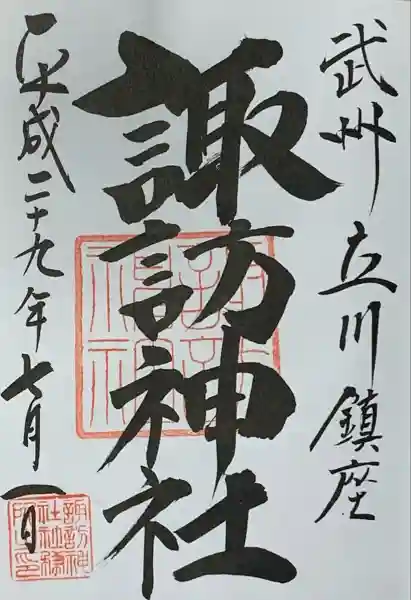 武州立川鎮座
諏訪神社
平成二十九年七月一日